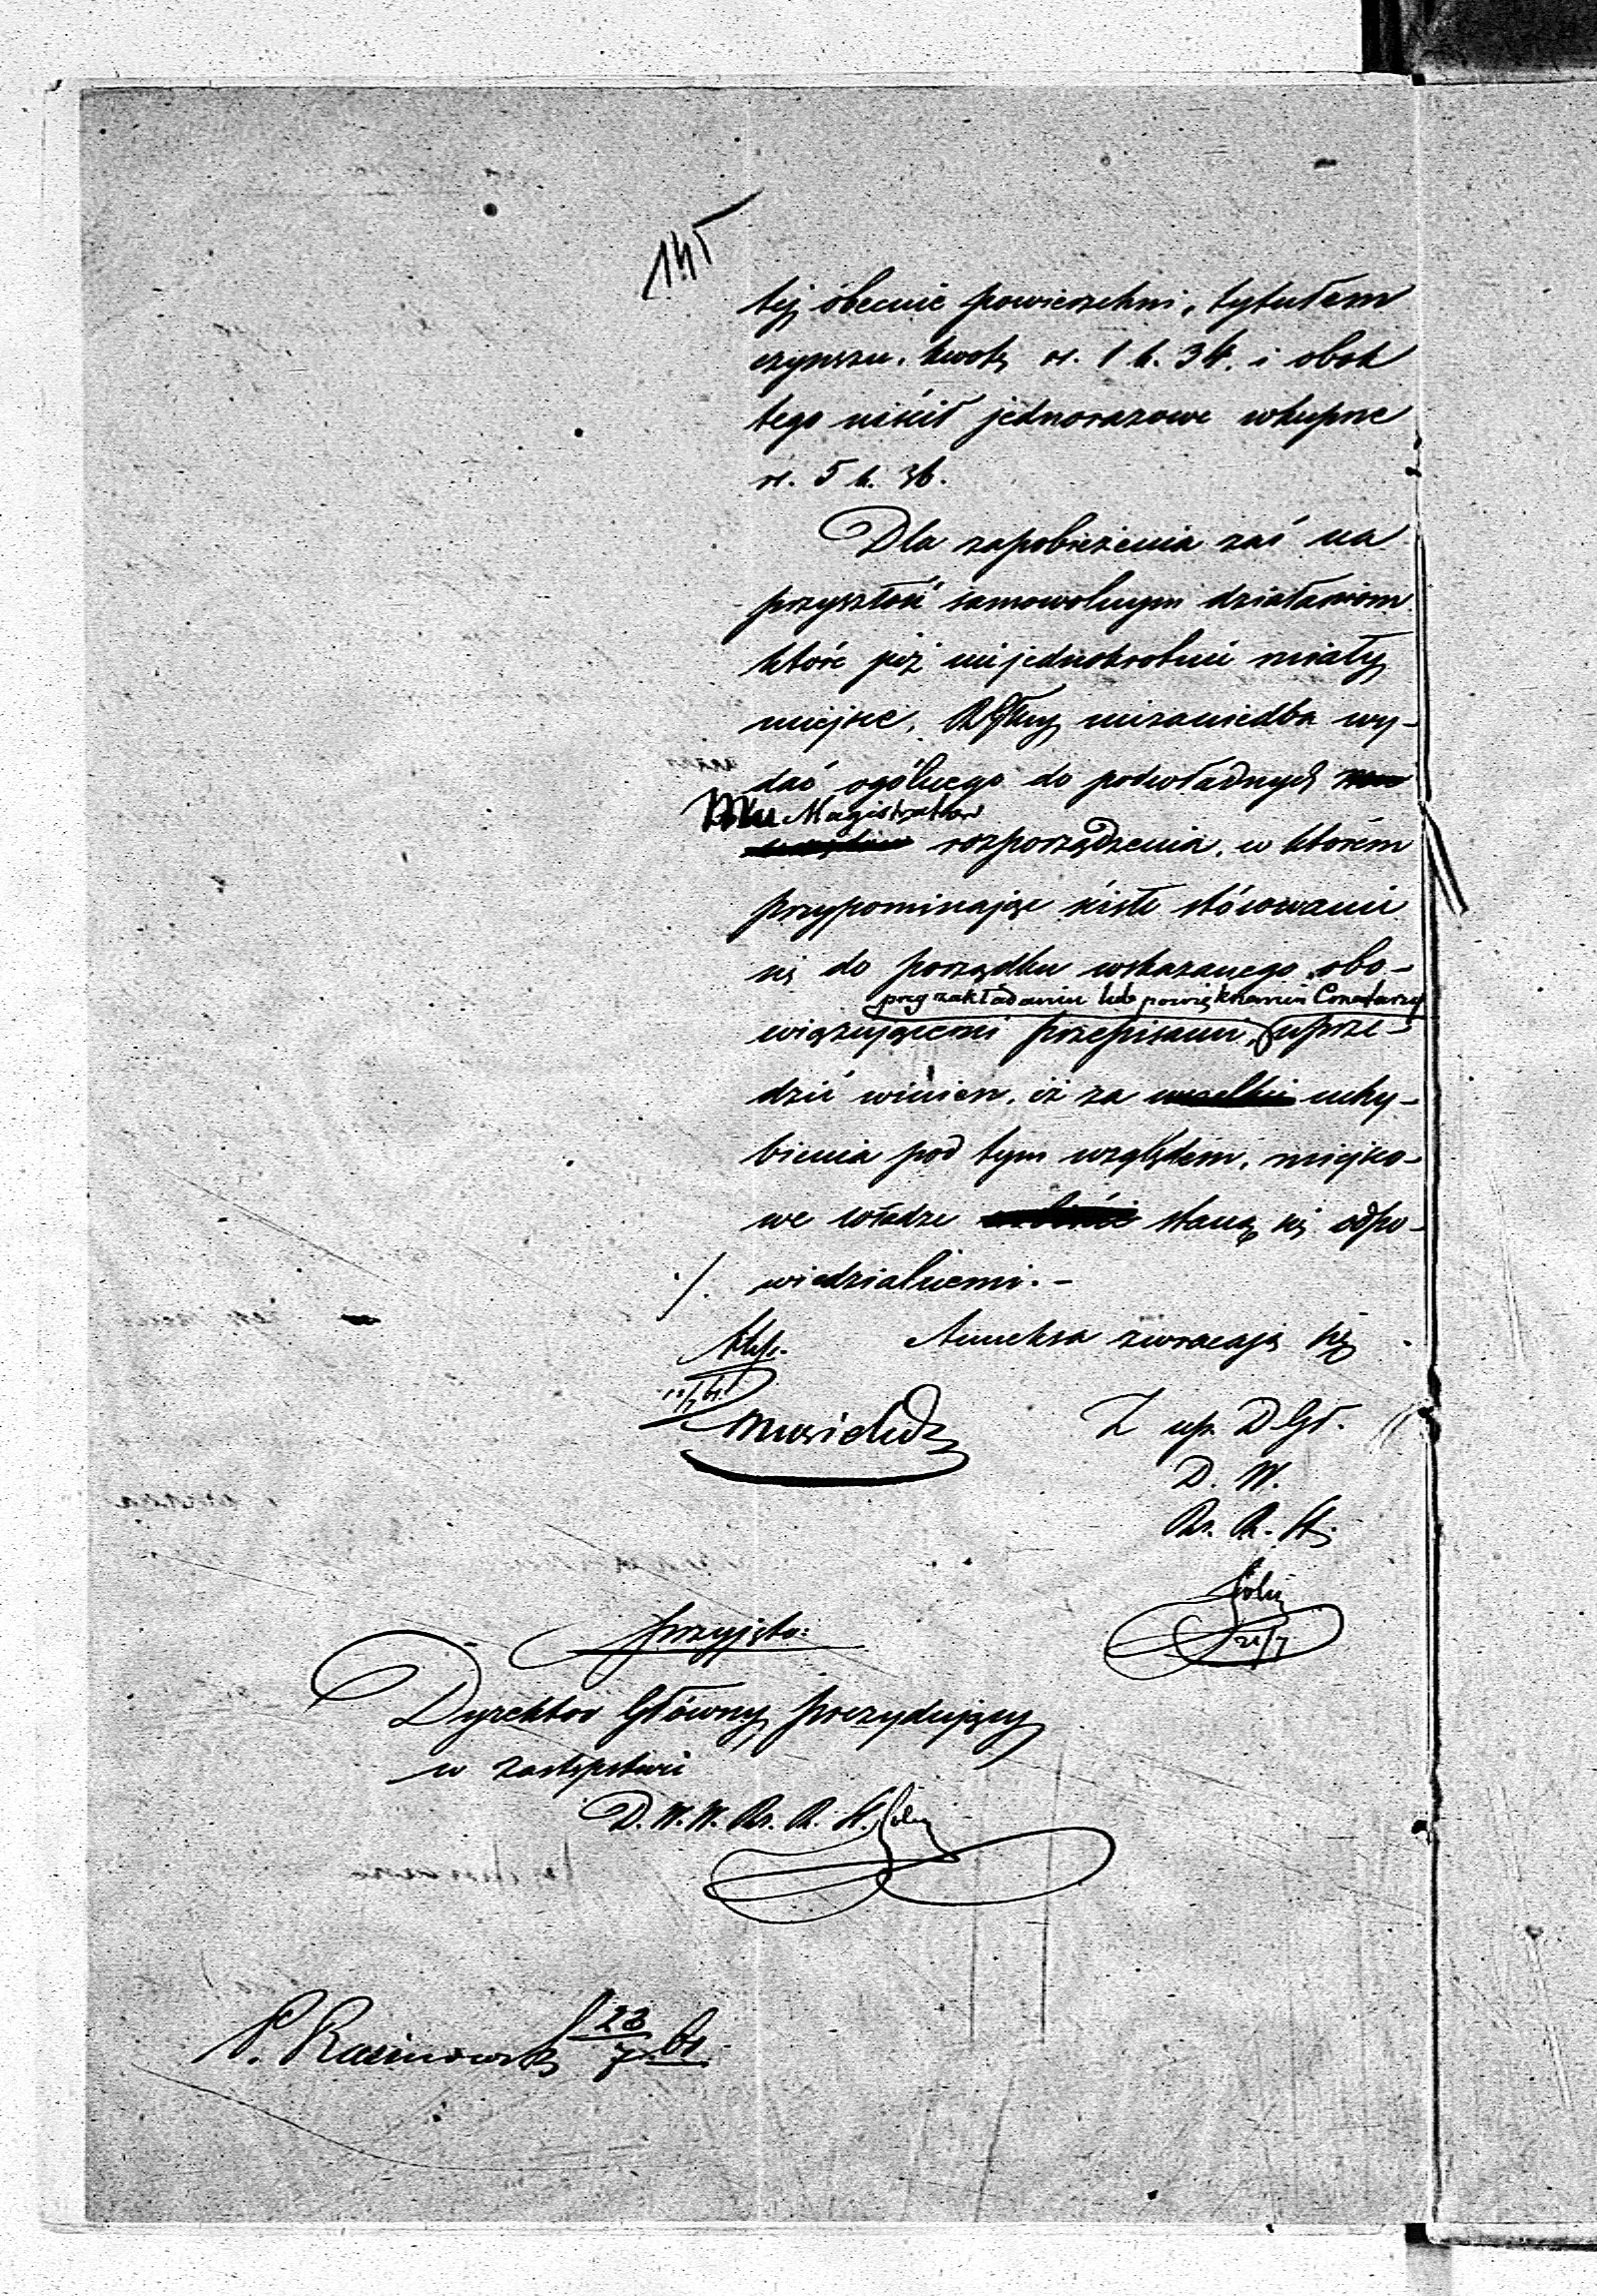 145
tej obecnie powierzchni, tytułem
czynszu, kwotę rs. 1 k. 34. i obok
tego uiścił jednorazowe wkupne
rs. 5 k. 36.
Dla zapobieżenia zaś na
przyszłość samowolnym działaniom
które już niejednokrotnie miały
miejsce, RGłny niezaniedba wy-
dać ogólnego do podwładnych
Mku Magistratów
rozporządzenia, w którém
przypominając ściśle stósowanie
się do porządku wskazanego obo-
przy zakładaniu lub powiększaniu Cmentarzy
wiązującemi przepisami, uprze-
dzić winien, iż za wszelkie uchy-
bienia pod tym względem, miejsco-
we władze staną się odpo-
./. wiedzialnemi.-
Anneksa zwracają się
Z up. D Gł.
D. W.
Rz. R. St.
21/7
przyjęto:
Dyrektor Główny prezydujący
w zastępstwie
D. W. W. Rz. R. St.
23/7 61